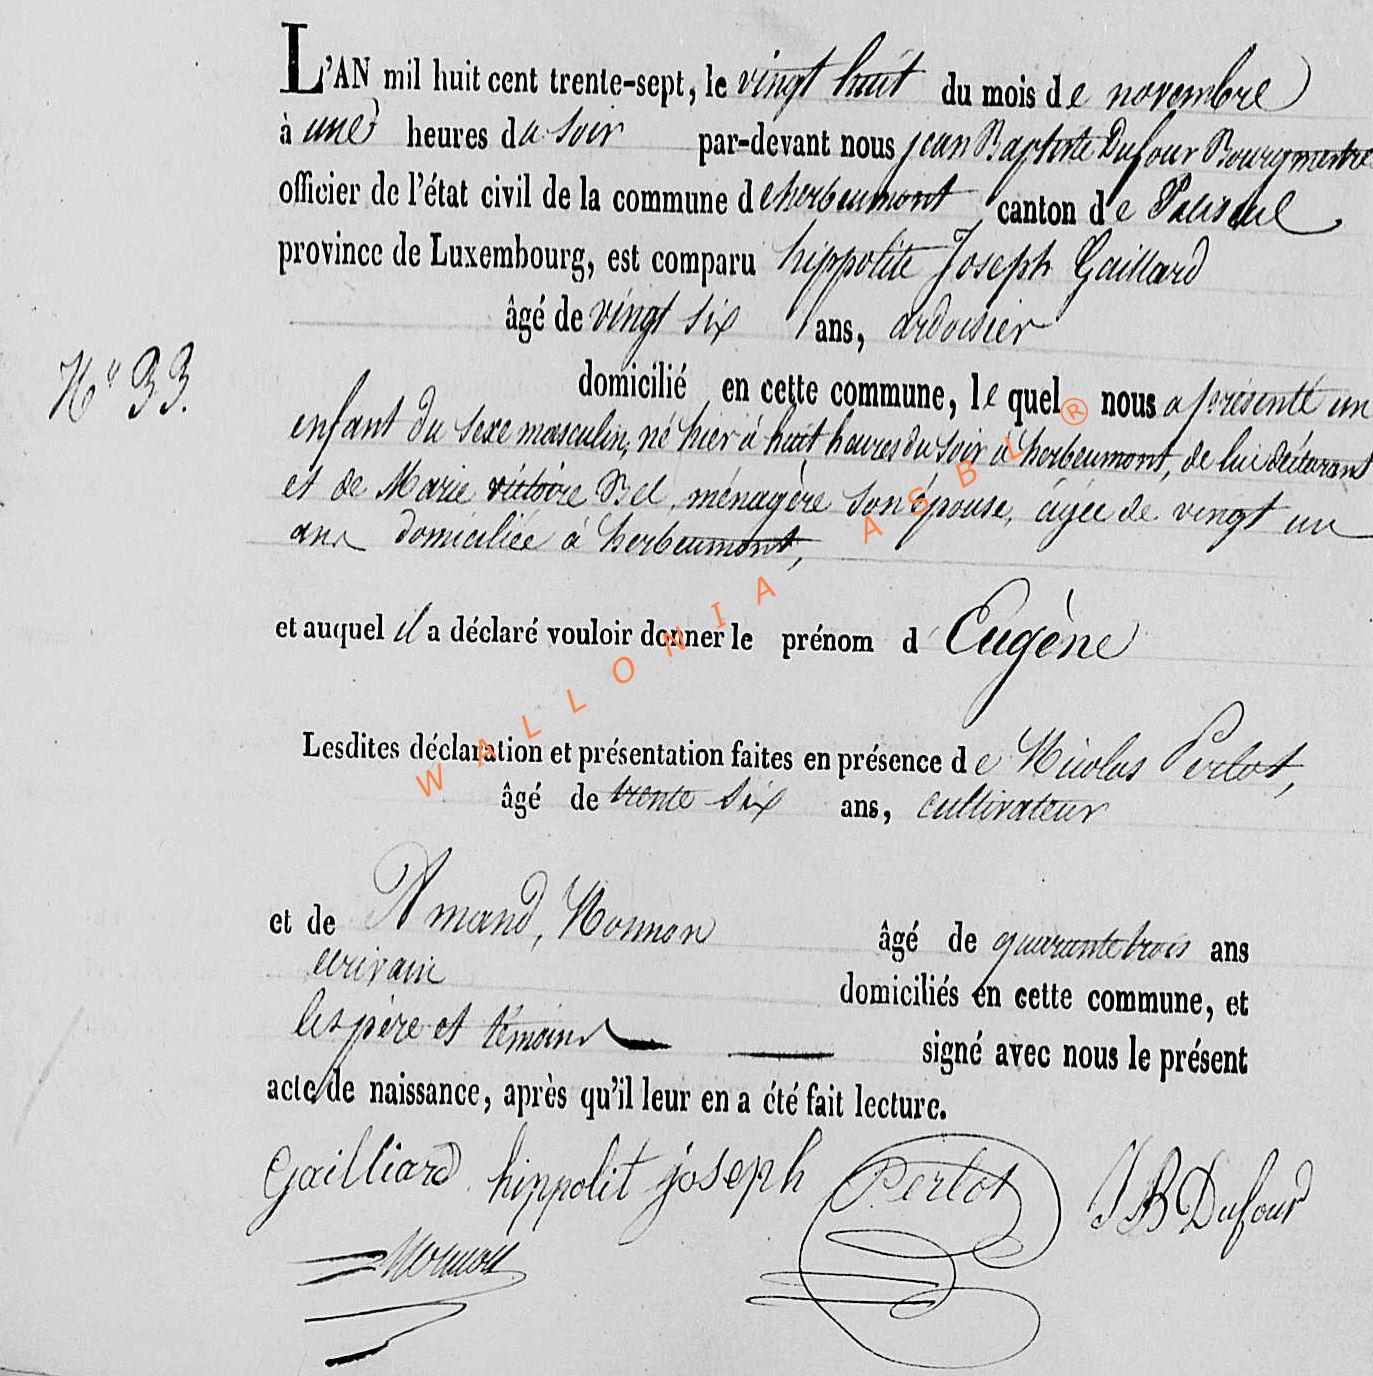 L'AN mil huit cent trente-sept, le vingt huit du mois de novembre
à une heures du soir par-devant nous jean Baptiste Dufour Bourgmestre
officier de l'état civil de la commune d'herbeumont canton de Paliseul
province de Luxembourg, est comparu hippolite Joseph Gaillard
âgé de vingt six ans, ardoisier
N° 33.
domicilié en cette commune, lequel nous a présenté un
enfant du sexe masculin, né hier à huit heures du soir à herbeumont, de lui déclarant
et de Marie victoire Bel, ménagère son épouse, âgée de vingt un
ans domiciliée à herbeumont,
et auquel il a déclaré vouloir donner le prénom d'Eugène
Lesdites déclaration et présentation faites en présence de Nicolas Perlot,
âgé de trente six ans, cultivateur
et de Amand, Monnon âgé de quarante trois ans
écrivain domiciliés en cette commune, et
les père et témoins signé avec nous le présent
acte de naissance, après qu'il leur en a été fait lecture.
Gailliard hippolit joseph Perlot J B Dufour
WALLONIA ASBL ®